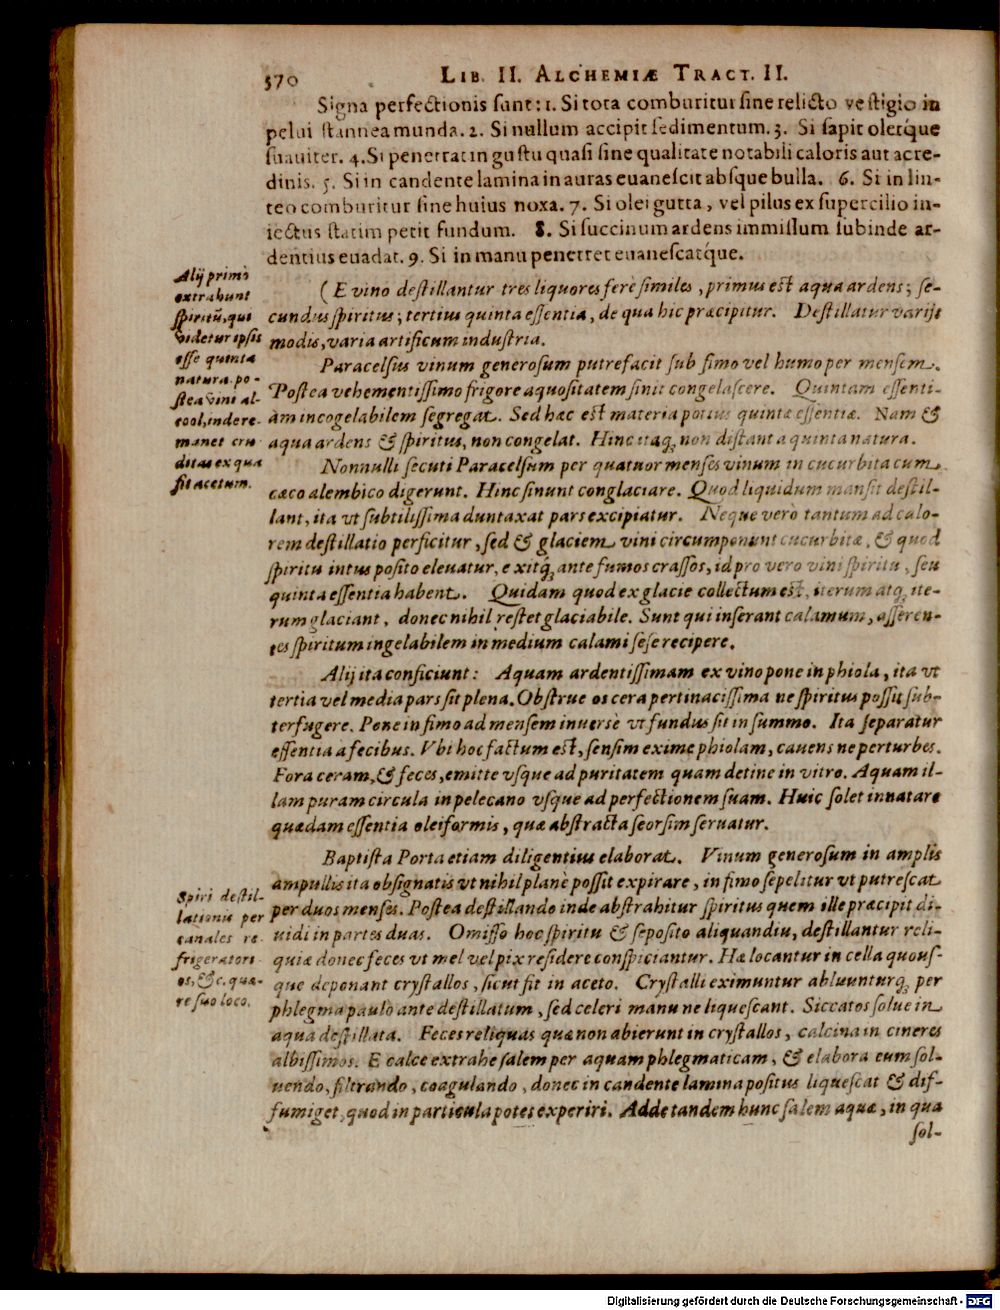 370
LIB. II. ALCHEMIÆ TRACT. II.
Signa perfectionis sunt: 1. Si tota comburitur sine relicto vestigio in
pelui stannea munda. 2. Si nullum accipit sedimentum. 3. Si sapit oletq́ue
suauiter. 4. Si penetrat in gustu quasi sine qualitate notabili caloris aut acre-
dinis. 5. Si in candente lamina in auras euanescit absque bulla. 6. Si in lin-
teo comburitur sine huius noxa. 7. Si olei gutta, vel pilus ex supercilio in-
iectus statim petit fundum. 8. Si succinum ardens immissum subinde ar-
dentius euadat. 9. Si in manu penetret euanescatq́ue.
Alij primò
extrahunt
spiritũ, qui
videtur ipsis
esse quinta
natura. po-
stea vini al-
cool, inde re-
manet cru-
ditas ex qua
fit acetum.
(E vino destillantur tres liquores ferè similes, primus est aqua ardens; se-
cundus spiritus; tertius quinta essentia, de qua hic præcipitur. Destillatur varijs
modis, varia artificum industria.
Paracelsus vinum generosum putrefacit sub fimo vel humo per mensem.
Postea vehementissimo frigore aquositatem sinit congelascere. Quintam essenti-
am incogelabilem segregat. Sed hac est materia potius quintæ essentiæ. Nam &
aqua ardens & spiritus, non congelat. Hinc itaq; non distant a quinta natura.
Nonnulli secuti Paracelsum per quatuor menses vinum in cucurbita cum
cæco alembico digerunt. Hinc sinunt conglaciare. Quod liquidum mansit destil-
lant, ita vt subtilissima duntaxat pars excipiatur. Neque verò tantum ad calo-
rem destillatio perficitur, sed & glaciem vini circumponunt cucurbitæ, & quod
spiritu intus posito eleuatur, exitq́; ante fumos crassos, id pro vero vini spiritu, seu
quinta essentia habent. Quidam quod ex glacie collectum est, iterum atq; ite-
rum glaciant, donec nihil restet glaciabile. Sunt qui inserant calamum, asseren-
tes spiritum ingelabilem in medium calami sese recipere.
Alij ita conficiunt: Aquam ardentissimam ex vino pone in phiola, ita vt
tertia vel media pars sit plena. Obstrue os cera pertinacissima ne spiritus possit sub-
terfugere. Pone in fimo ad mensem inuersè vt fundus sit in summo. Ita separatur
essentia a fecibus. Vbi hoc factum est, sensim exime phiolam, cauens ne perturbes.
Fora ceram, & feces, emitte vsque ad puritatem quam detine in vitro. Aquam il-
lam puram circula in pelecano vsque ad perfectionem suam. Huic solet innatare
quædam essentia oleiformis, quæ abstracta seorsim seruatur.
Baptista Porta etiam diligentius elaborat. Vinum generosum in amplis
ampullis ita obsignatis vt nihil planè possit expirare, in fimo sepelitur vt putrescat
per duos menses. Postea destillando inde abstrahitur spiritus quem ille præcipit di-
uidi in partes duas. Omisso hoc spiritu & seposito aliquandiu, destillantur reli-
quiæ donec feces vt mel vel pix residere conspiciantur. Hæ locantur in cella quous-
que deponant crystallos, sicut fit in aceto. Crystalli eximuntur abluunturq; per
phlegma paulo ante destillatum, sed celeri manu ne liquescant. Siccatos solue in
aqua destillata. Feces reliquas quæ non abierunt in crystallos, calcina in cineres
albissimos. E calce extrahe salem per aquam phlegmaticam, & elabora eum sol-
uendo, filtrando, coagulando, donec in candente lamina positus liquescat & dif-
fumiget, quod in particula potes experiri. Adde tandem hunc salem aquæ, in qua
sol-
Spiri destil-
lationis per
canales re-
frigeratori-
os, &c. quæ-
re suo loco.
Digitalisierung gefördert durch die Deutsche Forschungsgemeinschaft - DFG